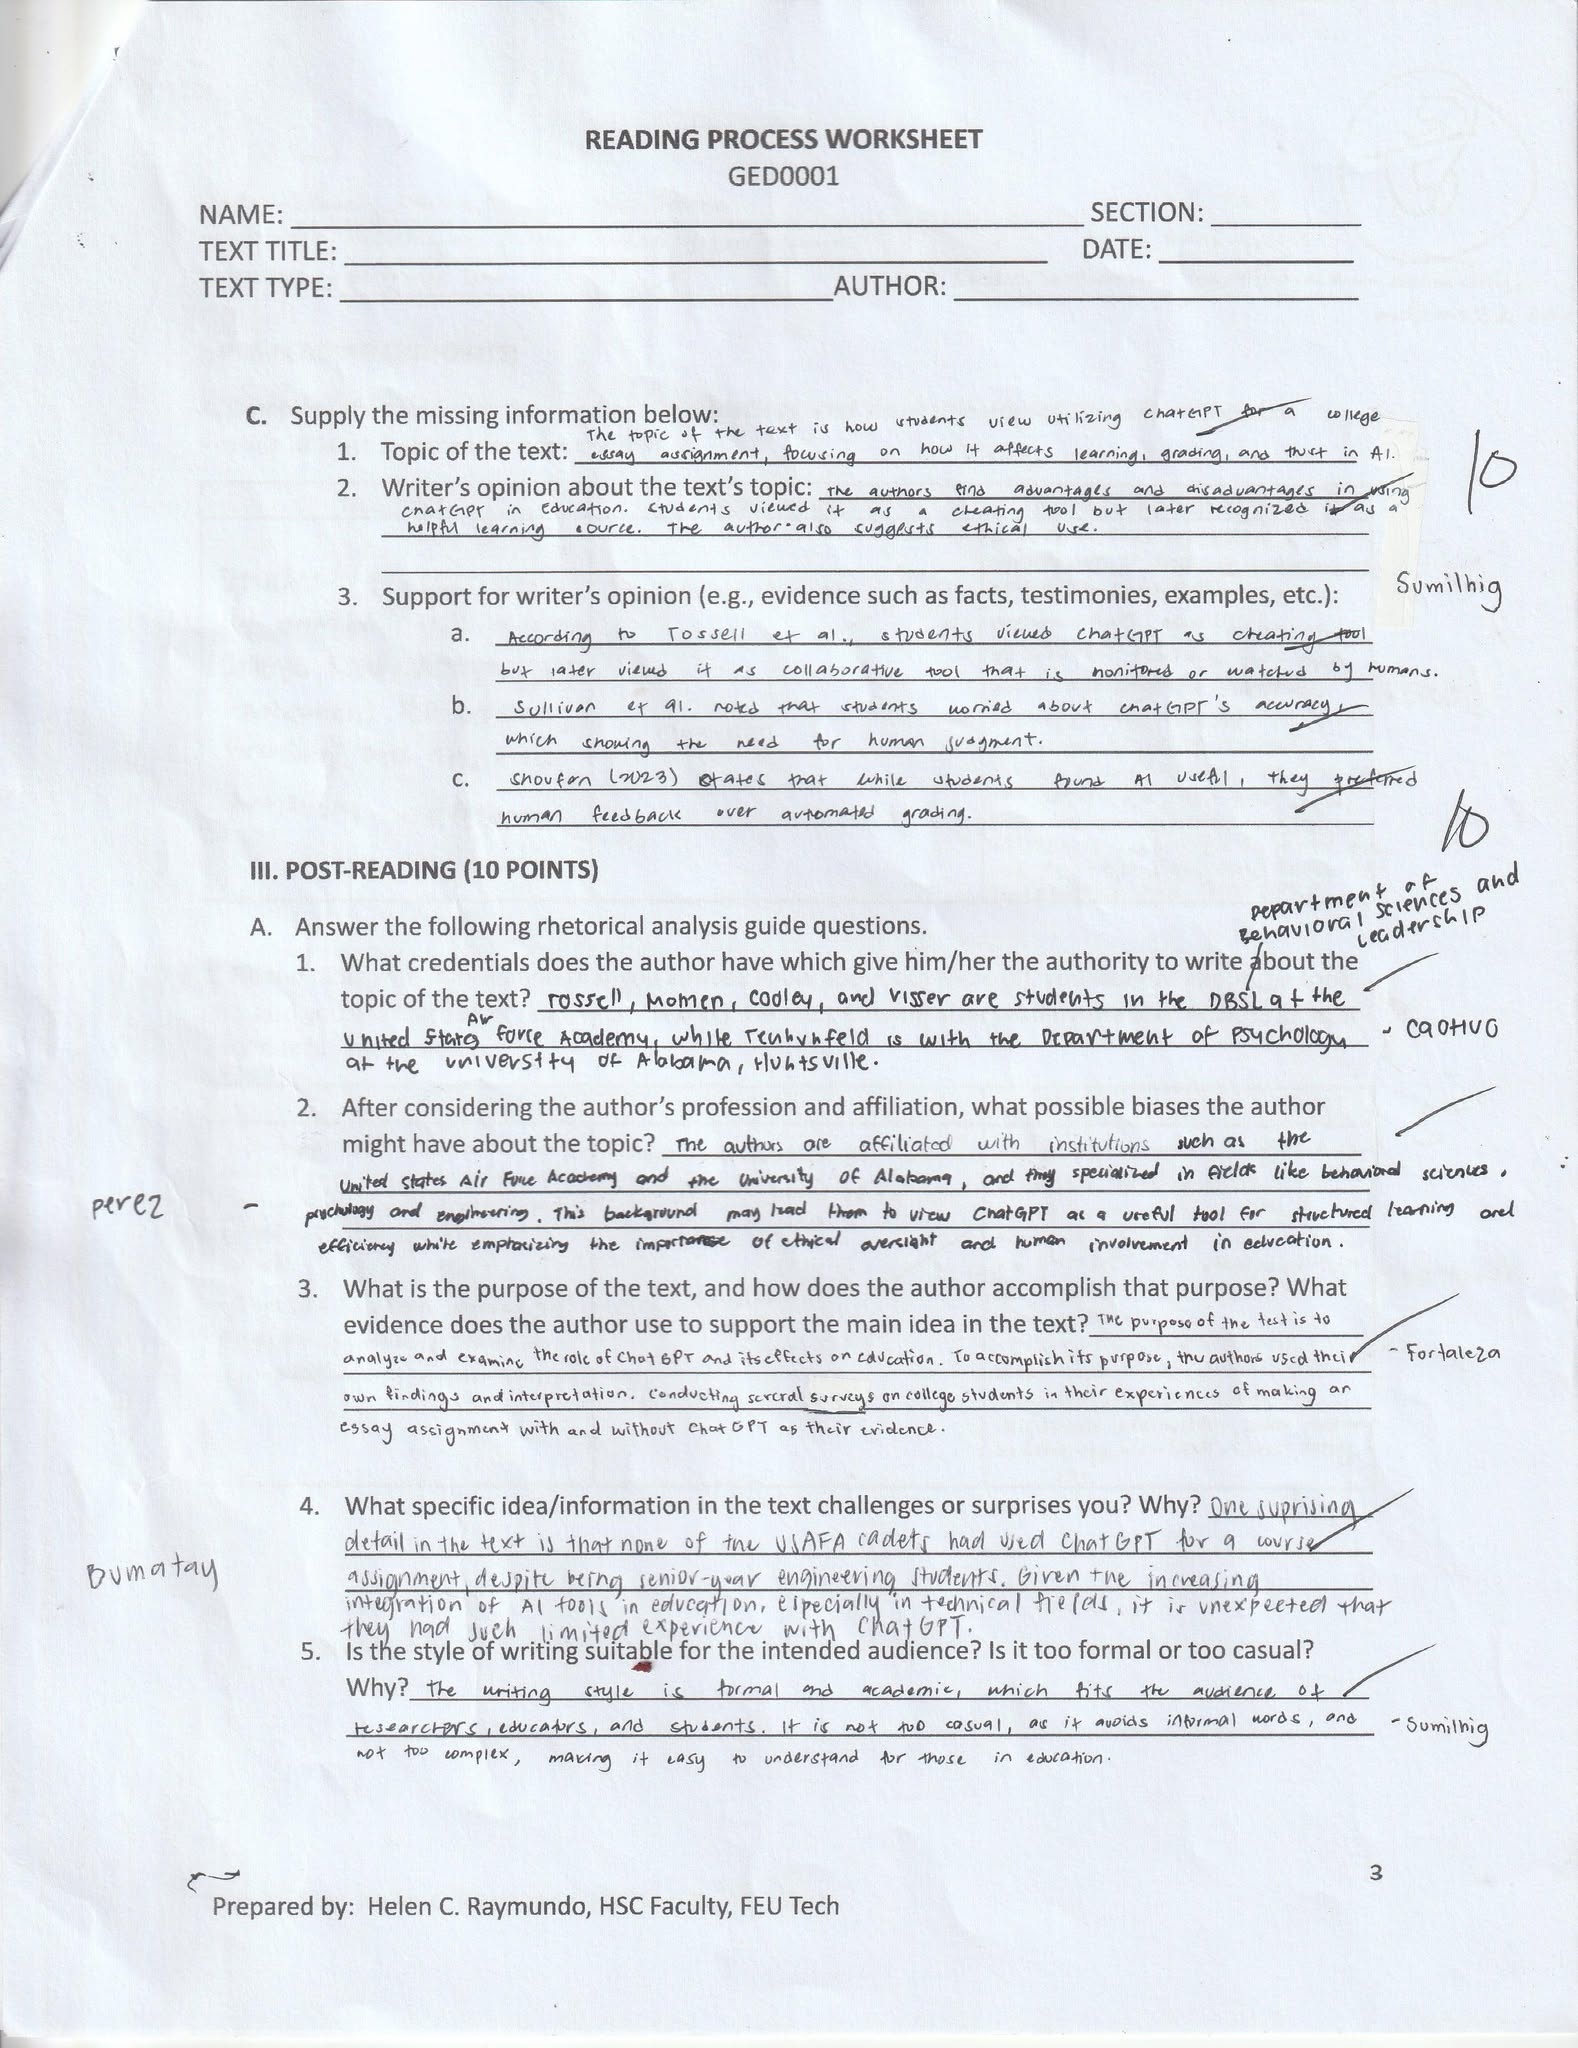 READING PROCESS WORKSHEET
GED0001
NAME: SECTION:
TEXT TITLE: DATE:
TEXT TYPE: AUTHOR:
C. Supply the missing information below:
The topic of the text is how students view utilizing ChatGPT for a college
1. Topic of the text: essay assignment, focusing on how it affects learning, grading, and trust in AI.
10
2. Writer's opinion about the text's topic: The authors find advantages and disadvantages in using
ChatGPT in education. Students viewed it as a cheating tool but later recognized it as a
helpful learning source. The author also suggests ethical use.
Sumilhig
3. Support for writer's opinion (e.g., evidence such as facts, testimonies, examples, etc.):
a. According to Tossell et al., students viewed ChatGPT as cheating tool
but later viewed it as collaborative tool that is monitored or watched by humans.
b. Sullivan et al. noted that students worried about chatGPT's accuracy,
which showing the need for human judgment.
c. Shoufan (2023) states that while students found AI useful, they preferred
human feedback over automated grading.
10
III. POST-READING (10 POINTS)
Department of
Behavioral Sciences and
Leadership
A. Answer the following rhetorical analysis guide questions.
1. What credentials does the author have which give him/her the authority to write about the
topic of the text? Tossell, Momen, Cooley, and Visser are students in the DBSL at the
United States Air Force Academy, while Tenhunfeld is with the Department of Psychology - Caotivo
at the university of Alabama, Huntsville.
2. After considering the author's profession and affiliation, what possible biases the author
might have about the topic? The authors are affiliated with institutions such as the
United States Air Force Academy and the University of Alabama, and they specialized in fields like behavioral sciences,
perez - psychology and engineering. This background may lead them to view ChatGPT as a useful tool for structured learning and
efficiency while emphasizing the importance of ethical oversight and human involvement in education.
3. What is the purpose of the text, and how does the author accomplish that purpose? What
evidence does the author use to support the main idea in the text? The purpose of the test is to
analyze and examine the role of Chat GPT and its effects on education. To accomplish its purpose, the authors used their - Fortaleza
own findings and interpretation. Conducting several surveys on college students in their experiences of making an
essay assignment with and without Chat GPT as their evidence.
4. What specific idea/information in the text challenges or surprises you? Why? One suprising
detail in the text is that none of the USAFA cadets had used ChatGPT for a course
Bumatay
assignment, despite being senior-year engineering students. Given the increasing
integration of AI tools in education, especially in technical fields, it is unexpected that
they had such limited experience with ChatGPT.
5. Is the style of writing suitable for the intended audience? Is it too formal or too casual?
Why? The writing style is formal and academic, which fits the audience of
researchers, educators, and students. It is not too casual, as it avoids informal words, and - Sumilhig
not too complex, making it easy to understand for those in education.
3
Prepared by: Helen C. Raymundo, HSC Faculty, FEU Tech